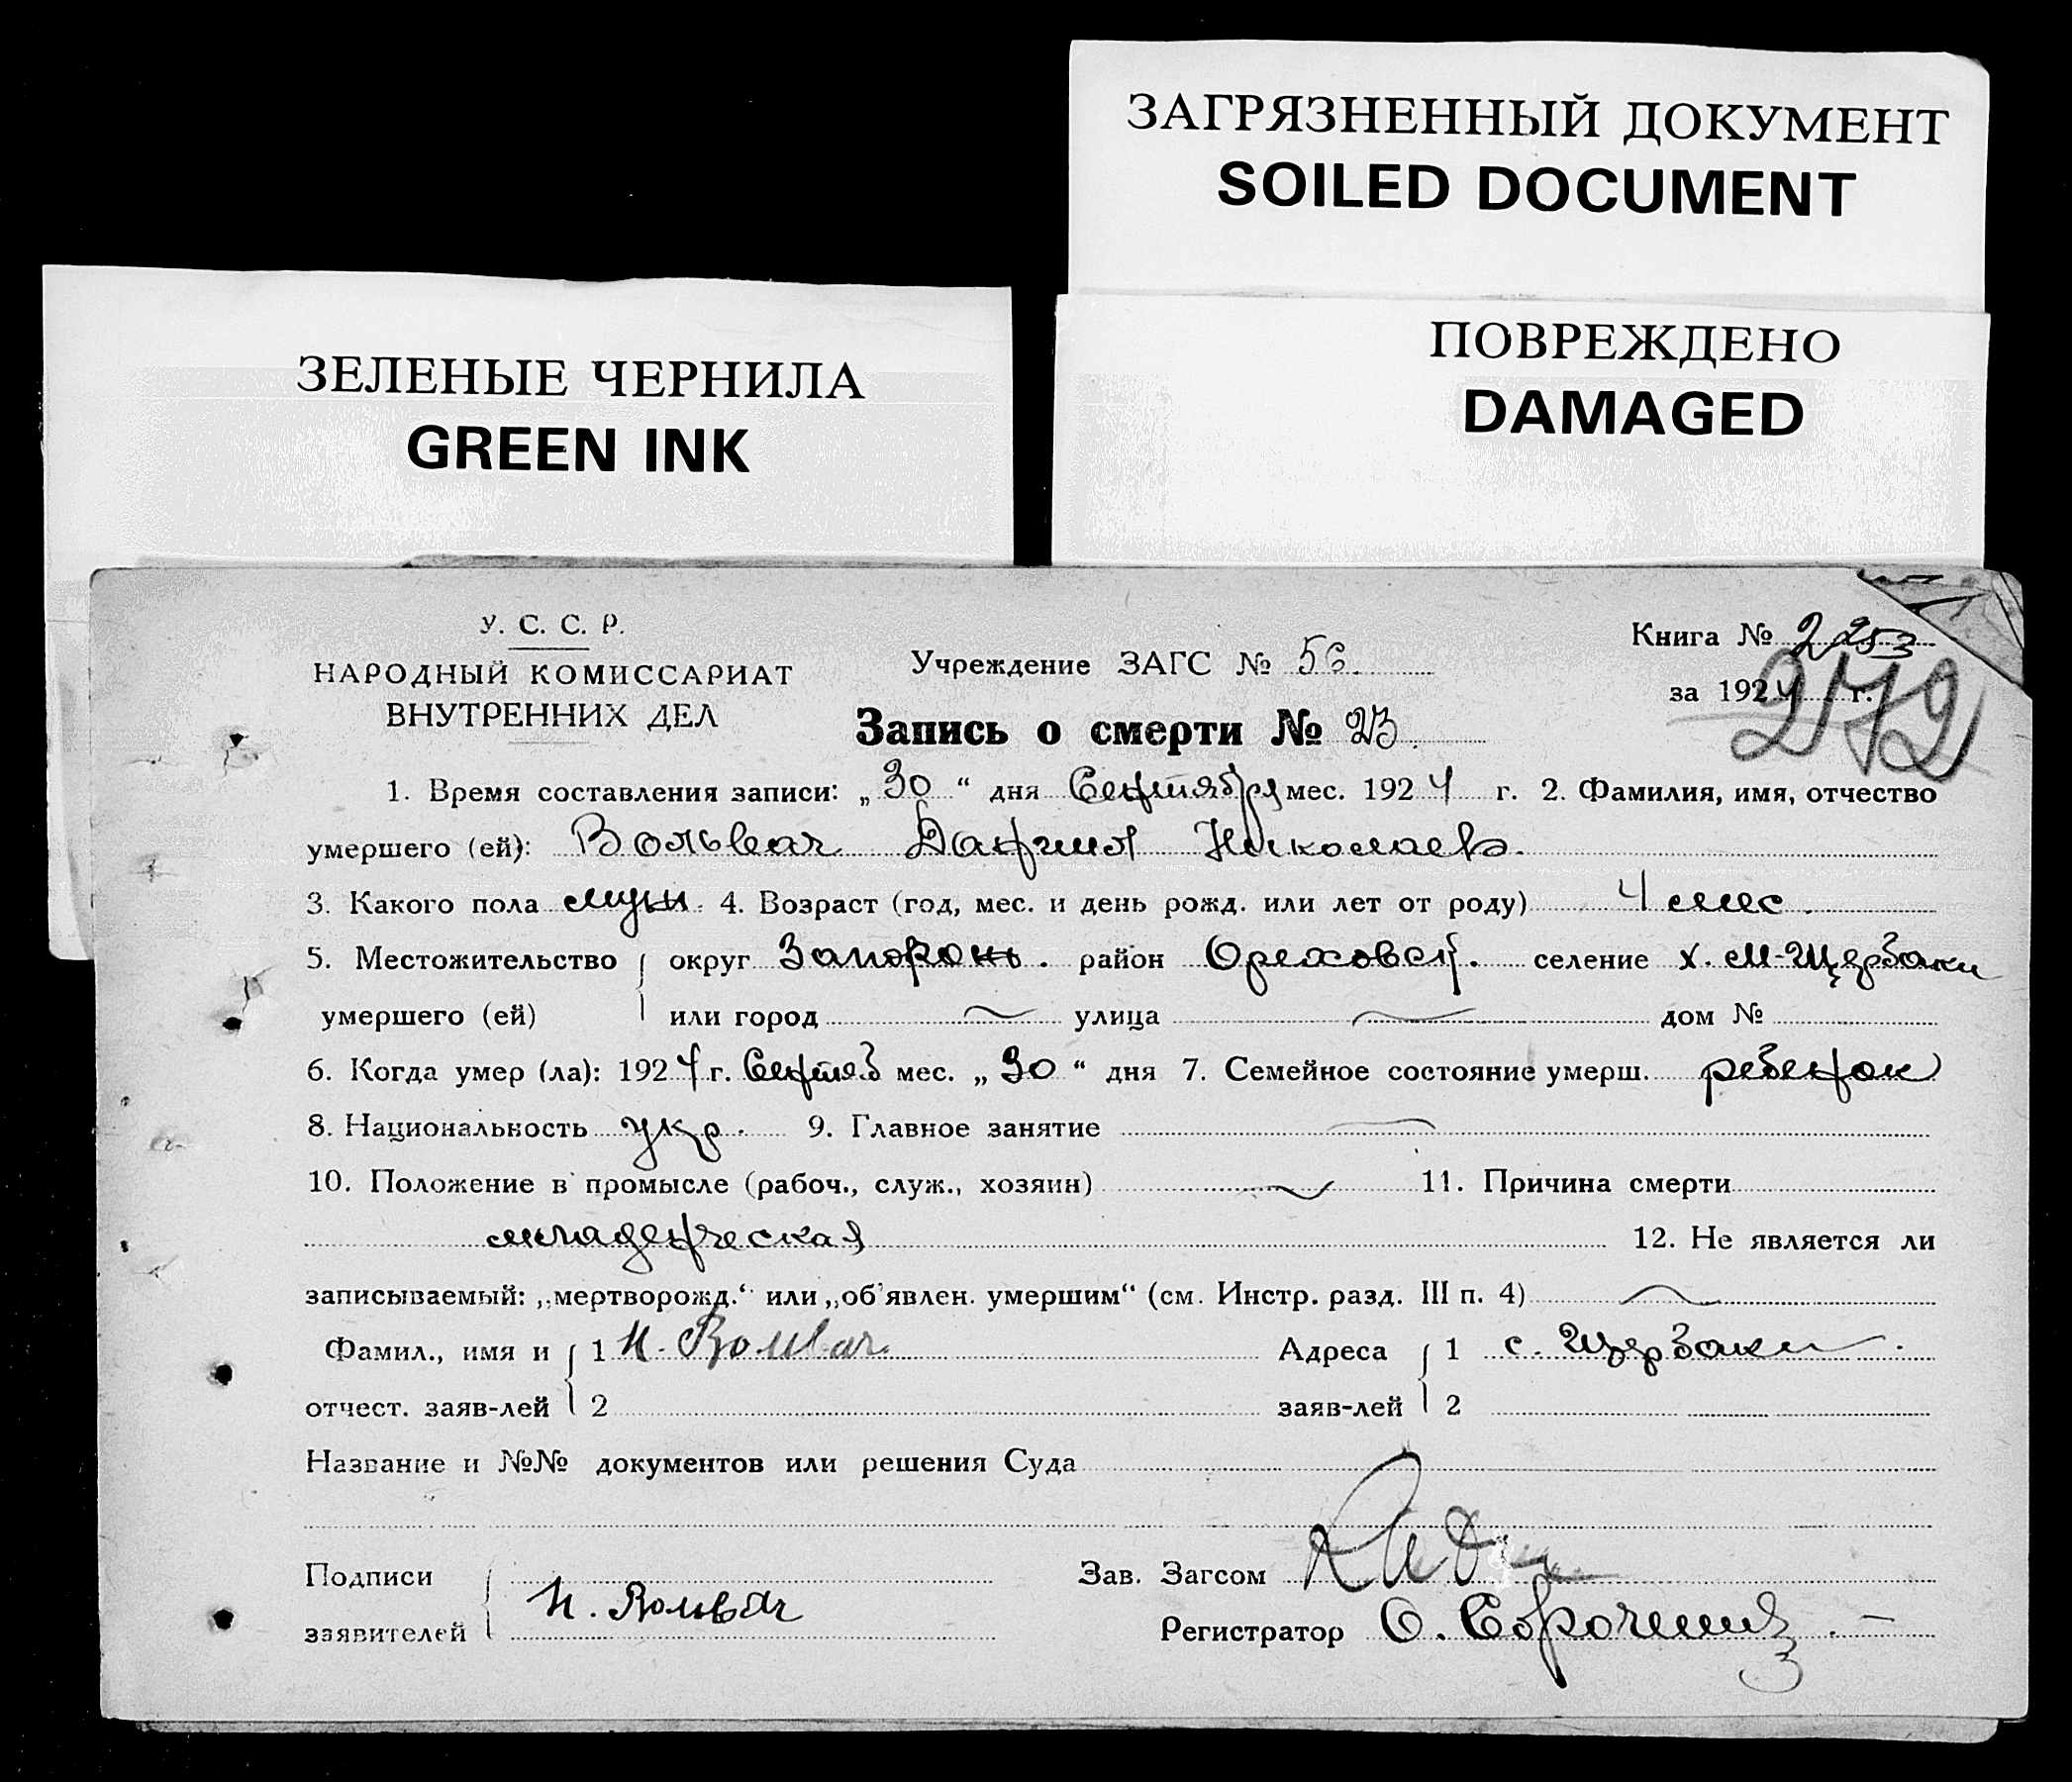 ЗАГРЯЗНЕННЫЙ ДОКУМЕНТ
SOILED DOCUMENT
ПОВРЕЖДЕНО
DAMAGED
ЗЕЛЕНЫЕ ЧЕРНИЛА
GREEN INK
У. С. С. Р.
НАРОДНЫЙ КОМИССАРИАТ
ВНУТРЕННИХ ДЕЛ
Учреждение ЗАГС № 56.
Книга № 2253
за 1924 г.
272
Запись о смерти № 23.
1. Время составления записи: „30“ дня Сентября мес. 1924 г. 2. Фамилия, имя, отчество
умершего (ей): Вольвач Николаев.
3. Какого пола муж. 4. Возраст (год, мес. и день рожд. или лет от роду) 4 мес.
5. Местожительство округ Запорож. район Ореховск. селение х. М-Щербаки
умершего (ей) или город улица дом №
6. Когда умер (ла): 1924 г. Сентяб мес. „30“ дня 7. Семейное состояние умерш. ребенок
8. Национальность укр. 9. Главное занятие
10. Положение в промысле (рабоч., служ., хозяин) 11. Причина смерти
младенческая 12. Не является ли
записываемый: „мертворожд.“ или „об'явлен. умершим“ (см. Инстр. разд. III п. 4)
Фамил., имя и 1 Н. Вольвач Адреса 1 с. Щербаки.
отчест. заяв-лей 2 заяв-лей 2
Название и №№ документов или решения Суда
Подписи Зав. Загсом
заявителей Н. Вольвач Регистратор О.